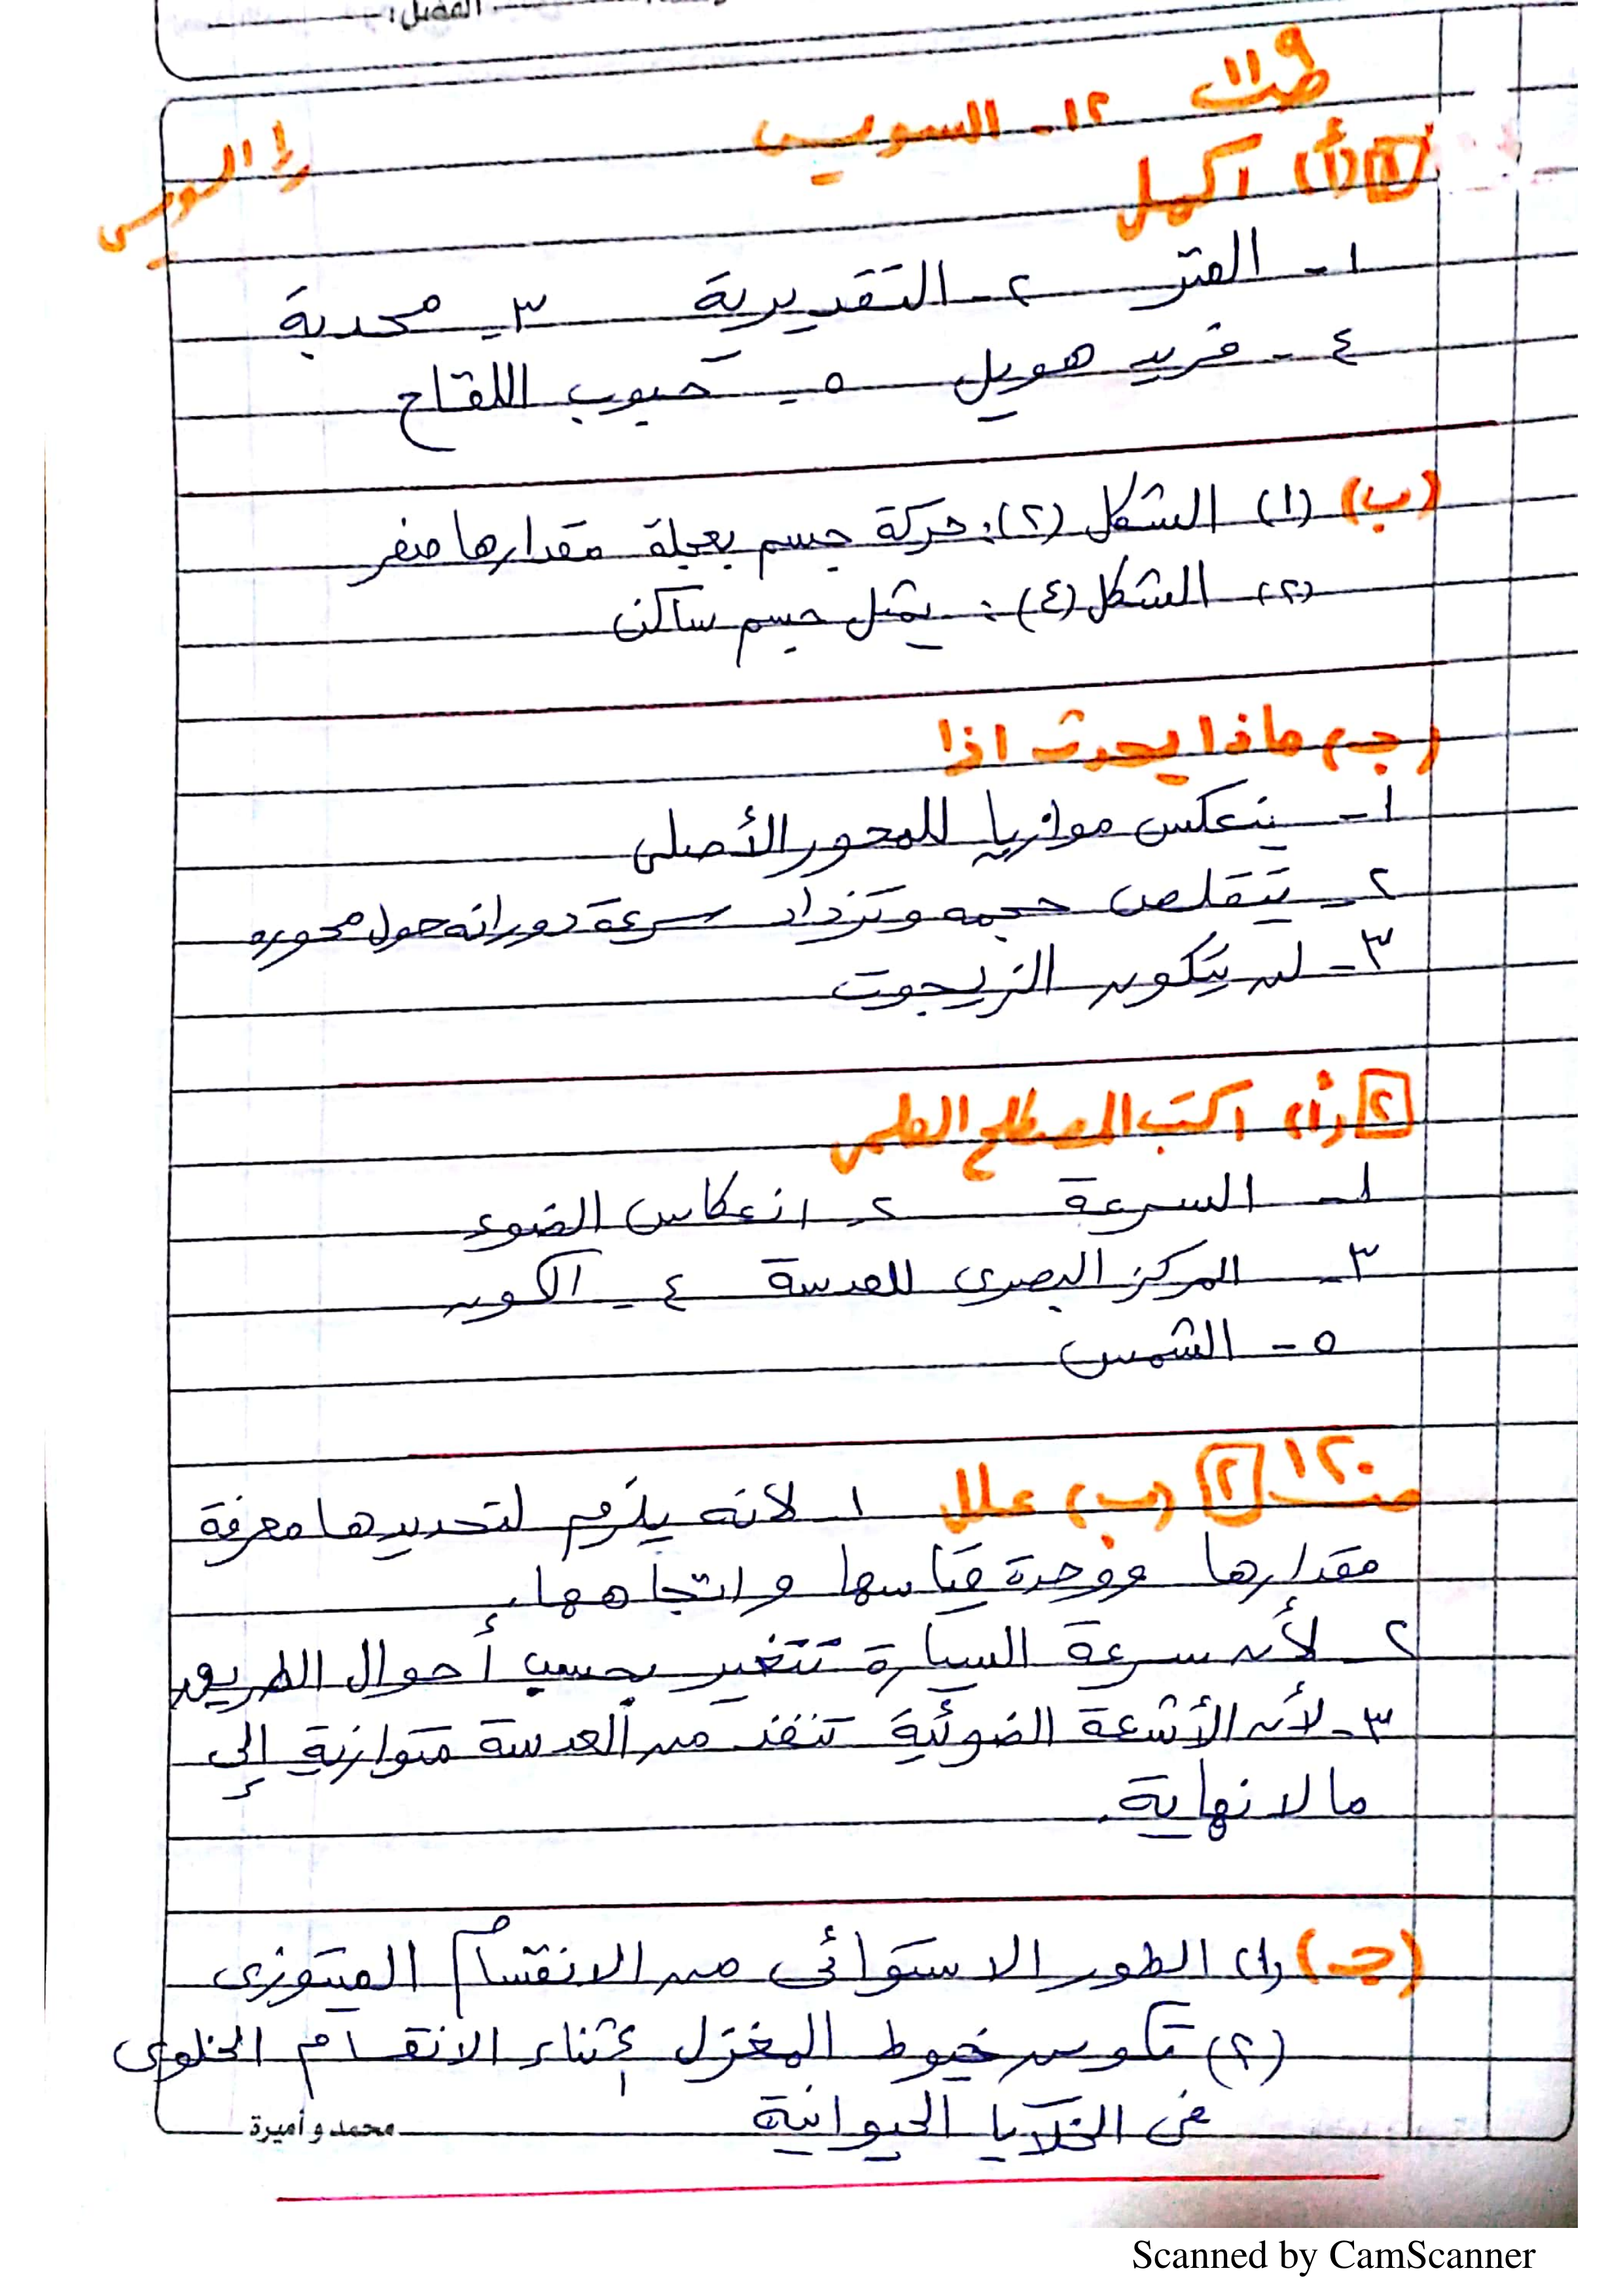 الفصل:
ص ١١٩
١٢ - السويس
١/ السويس
١ (أ) أكمل
١ - المتر ٢ - التقديرية ٣ - محدبة
٤ - فريد هويل ٥ - حبوب اللقاح
(ب) (١) الشكل (٢): حركة جسم بعجلة مقدارها صفر
(٢) الشكل (٤): يمثل جسم ساكن
(جـ) ماذا يحدث اذا
١ - ينعكس موازيا للمحور الأصلى
٢ - يتقلص حجمه وتزداد سرعة دورانه حول محوره
٣ - لن يتكون الزيجوت
٢ (أ) اكتب المصطلح العلمى
١ - السرعة ٢ - انعكاس الضوء
٣ - المركز البصرى للعدسة ٤ - الكون
٥ - الشمس
ص ١٢٠ ٢ (ب) علل ١ - لأنه يلزم لتحديدها معرفة
مقدارها ووحدة قياسها واتجاهها.
٢ - لأن سرعة السيارة تتغير بحسب أحوال الطريق
٣ - لأن الأشعة الضوئية تنفذ من العدسة متوازية إلى
ما لا نهاية.
(جـ) (١) الطور الاستوائى من الانقسام الميتوزى
(٢) تكوين خيوط المغزل أثناء الانقسام الخلوى
فى الخلايا الحيوانية
محمد و أميرة
Scanned by CamScanner